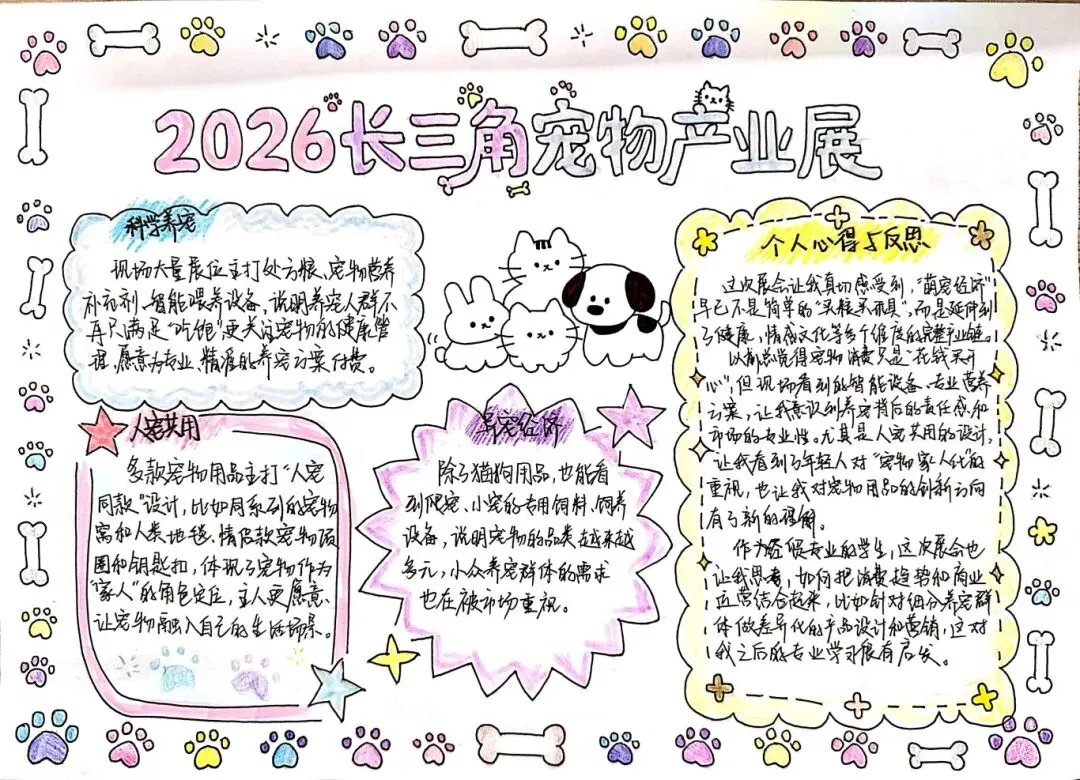 2026长三角宠物产业展
科学养宠
现场大量展位主打处方粮、宠物营养
补充剂、智能喂养设备，说明养宠人群不
再只满足“吃饱”更关注宠物的健康管
理，愿意为专业、精准的养宠方案付费。
人宠共用
多款宠物用品主打“人宠
同款”设计，比如同系列的宠物
窝和人类地毯、情侣款宠物项
圈和钥匙扣，体现了宠物作为
“家人”的角色定位，主人更愿意
让宠物融入自己的生活场景。
异宠经济
除了猫狗用品，也能看
到爬宠、小宠的专用饲料、饲养
设备，说明宠物的品类越来越
多元，小众养宠群体的需求
也在被市场重视。
个人心得与反思
这次展会让我真切感受到，“萌宠经济”
早已不是简单的“买粮买玩具”，而是延伸到
了健康、情感文化等多个维度的完整产业链。
以前总觉得宠物消费只是“花钱买开
心”，但现场看到的智能设备、专业营养
方案，让我意识到养宠背后的责任感和
市场的专业性。尤其是人宠共用的设计，
让我看到了年轻人对“宠物家人化”的
重视，也让我对宠物用品的创新方向
有了新的理解。
作为经保专业的学生，这次展会也
让我思考，如何把消费趋势和商业
运营结合起来，比如针对细分养宠群
体做差异化的产品设计和营销，这对
我之后的专业学习很有启发。